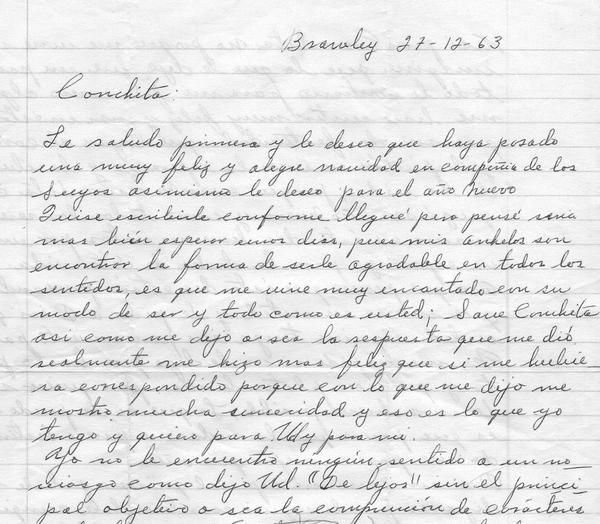 Brawley 27-12-63
Conchita:
Le saludo primero y le deseo que haya pasado
una muy feliz y alegre navidad en compañia de los
Suyos asimismo le deseo para el año Nuevo
Quise escribirle conforme llegué pero pensé seria
mas bién esperar unos dias, pues mis anhelos son
encontrar la forma de serle agradable en todos los
sentidos, es que me vine muy encantado con su
modo de ser y todo como es usted; Save Conchita
asi como me dejo o sea la respuesta que me dió
realmente me hizo mas feliz que si me hubie-
ra correspondido porque con lo que me dijo me
mostro mucha sinceridad y eso es lo que yo
tengo y quiero para Ud y para mi.
Yo no le encuentro ningún sentido a un no-
viasgo como dijo Ud. "De lejos" sin el princi-
pal objetivo o sea la comprención de carácteres